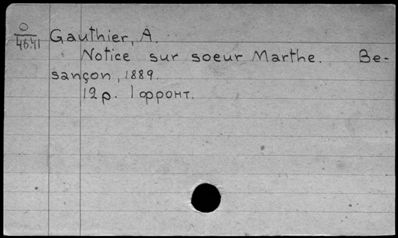 O
4641
Gauthier, A.
Notice sur soeur Marthe. Be-
sançon, 1889.
12p. 1 фронт.